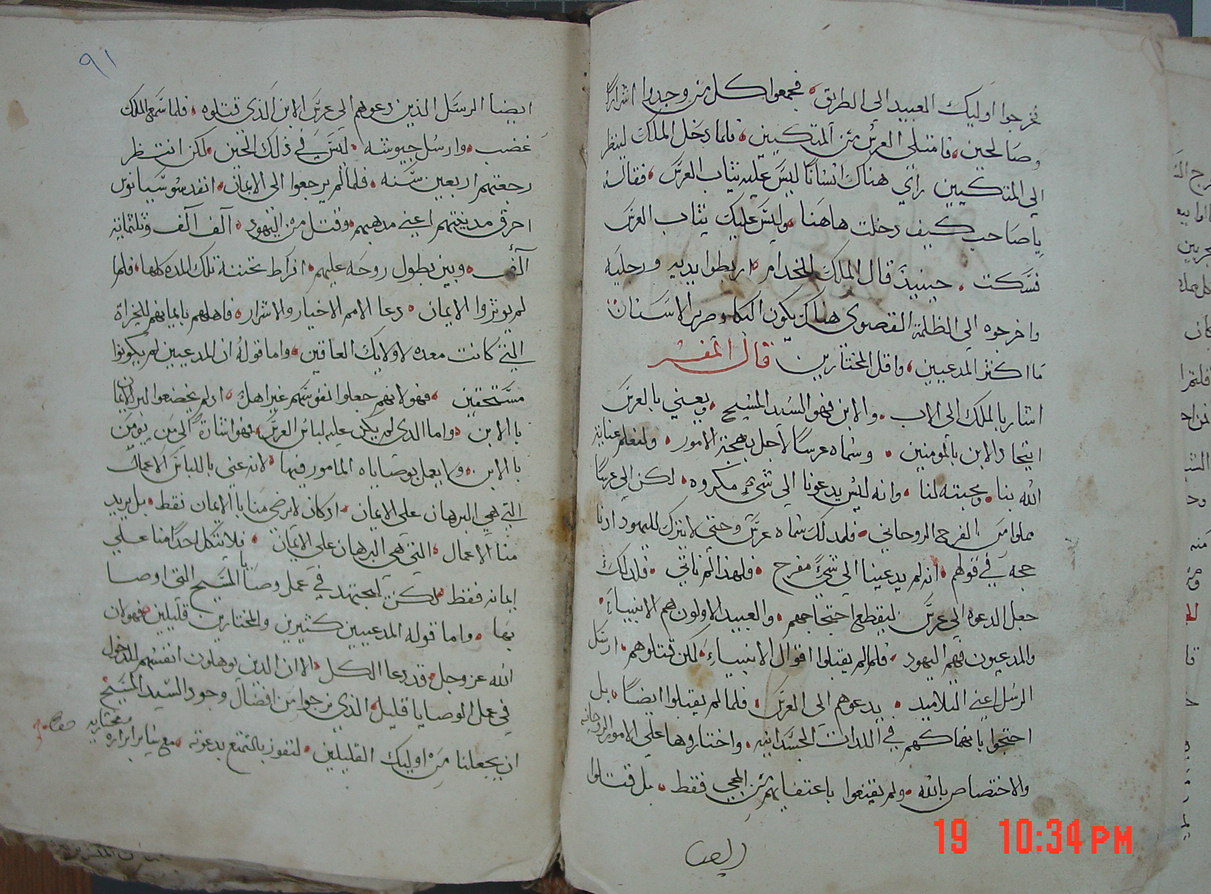 فخرجوا اوليك العبيد الى الطريق فجمعوا كل من وجدوا اشرارًا
وصالحين فامتلى العرس من المتكيين فلما دخل الملك لينظر
الي المتكيين راي هناك انسانًا ليس عليه ثياب العرس فقال له
يا صاحب كيف دخلت هاهنا وليس عليك ثياب العرس
فسكت حينيذ قال الملك للخدام اربطوا يديه ورجليه
واخرجوه الي الظلمة القصوي هناك يكون البكا وصرير الاسنان
ما اكثر المدعيين واقل المختارين قال المفسر
اشار بالملك الى الاب والابن فهو السيد المسيح ويعني بالعرس
اتحاد الابن بالمومنين وسماه عرسًا لاجل بهجة الامور ولنعلم عناية
الله بنا ومحبته لنا وانه ليس يدعونا الي شي مكروه لكن الي عرسًا
مملوا من الفرح الروحاني فلذلك سماه عرس وحتي لا يترك لليهود
حجه في قولهم انه لم يدعينا الي شي مفرح فلهذا لم ناتي فلذلك
جعل الدعوه الي عرس ليقطع احتجاجهم والعبيد الاولون هم الانبياء
والمدعيون فهم اليهود فلما لم يقبلوا اقوال الانبياء لكن قتلوهم ارسل
الرسل اعني التلاميد يدعوهم الى العرس فلما لم يقبلوا ايضًا بل
احتجوا بانهماكهم في اللذات الجسدانيه واختاروها علي الامور الروحانيه
والاختصاص بالله ولم يقتنعوا باعتفايهم من المجي فقط بل قتلوا
ايضا
٩١
ايضًا الرسل الذين دعوهم الى عرس الابن الذي قتلوه فلما سمع الملك
غضب وارسل جيوشه ليس في ذلك الحين لكن انتظر
رجعتهم اربعين سنه فلما لم يرجعوا الى الايمان انفد
احرق مدينتهم اعني مدهبهم وقتل من اليهود الف الف وثلثماية
الف وبين بطول روحه عليهم افراط محبته تلك المده كلها فلما
لم يوثروا الايمان دعا الامم الاخيار والاشرار فاهلهم بايمانهم للخيراة
التي كانت معده لاولايك العاقين واما قوله ان المدعيين لم يكونوا
مستحقين فهو لانهم جعلوا نفوسهم غير اهل اد لم يخضعوا الى الايمان
بالابن واما الذي لم يكن عليه لباس العرس فهو اشارة الى من يومن
بالابن ولا يعمل بوصاياه المامور فيها لانه عني باللباس الاعمال
التي هي البرهان علي الايمان اد كان لا يرضي منا بالايمان فقط بل يريد
منا الاعمال التي هي البرهان علي الايمان فلا يتكل احدًا منا علي
ايمانه فقط لكن ليجتهد في عمل وصايا المسيح التي اوصا
بها واما قوله المدعيين كثيرين والمختارين قليلين فهو لان
الله عز وجل قد دعا الكل الا ان الذين يوهلون انفسهم للدخول
في عمل الوصايا قليل الذي نرجوا من افضال وجود السيد المسيح
ان يجعلنا من اوليك القليلين لنفوز بالتمتع بدعوته مع ساير ابراره
ومختاريه
19 10:34 PM